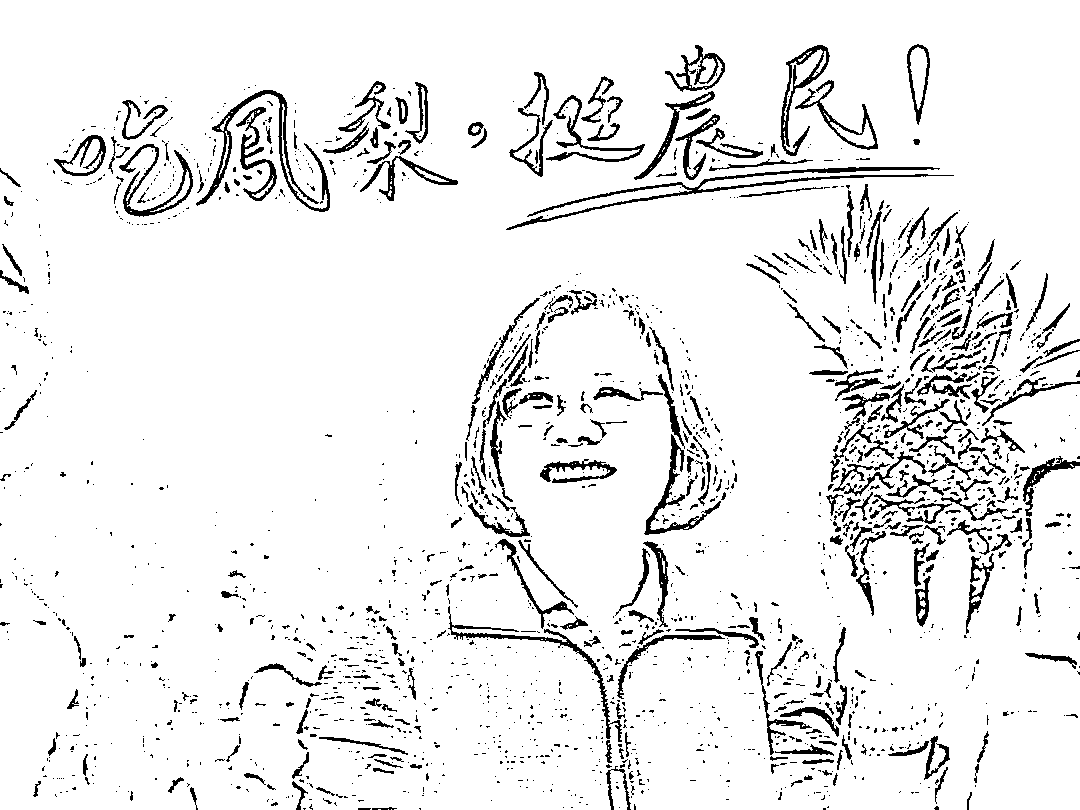 吃鳳梨，挺農民！